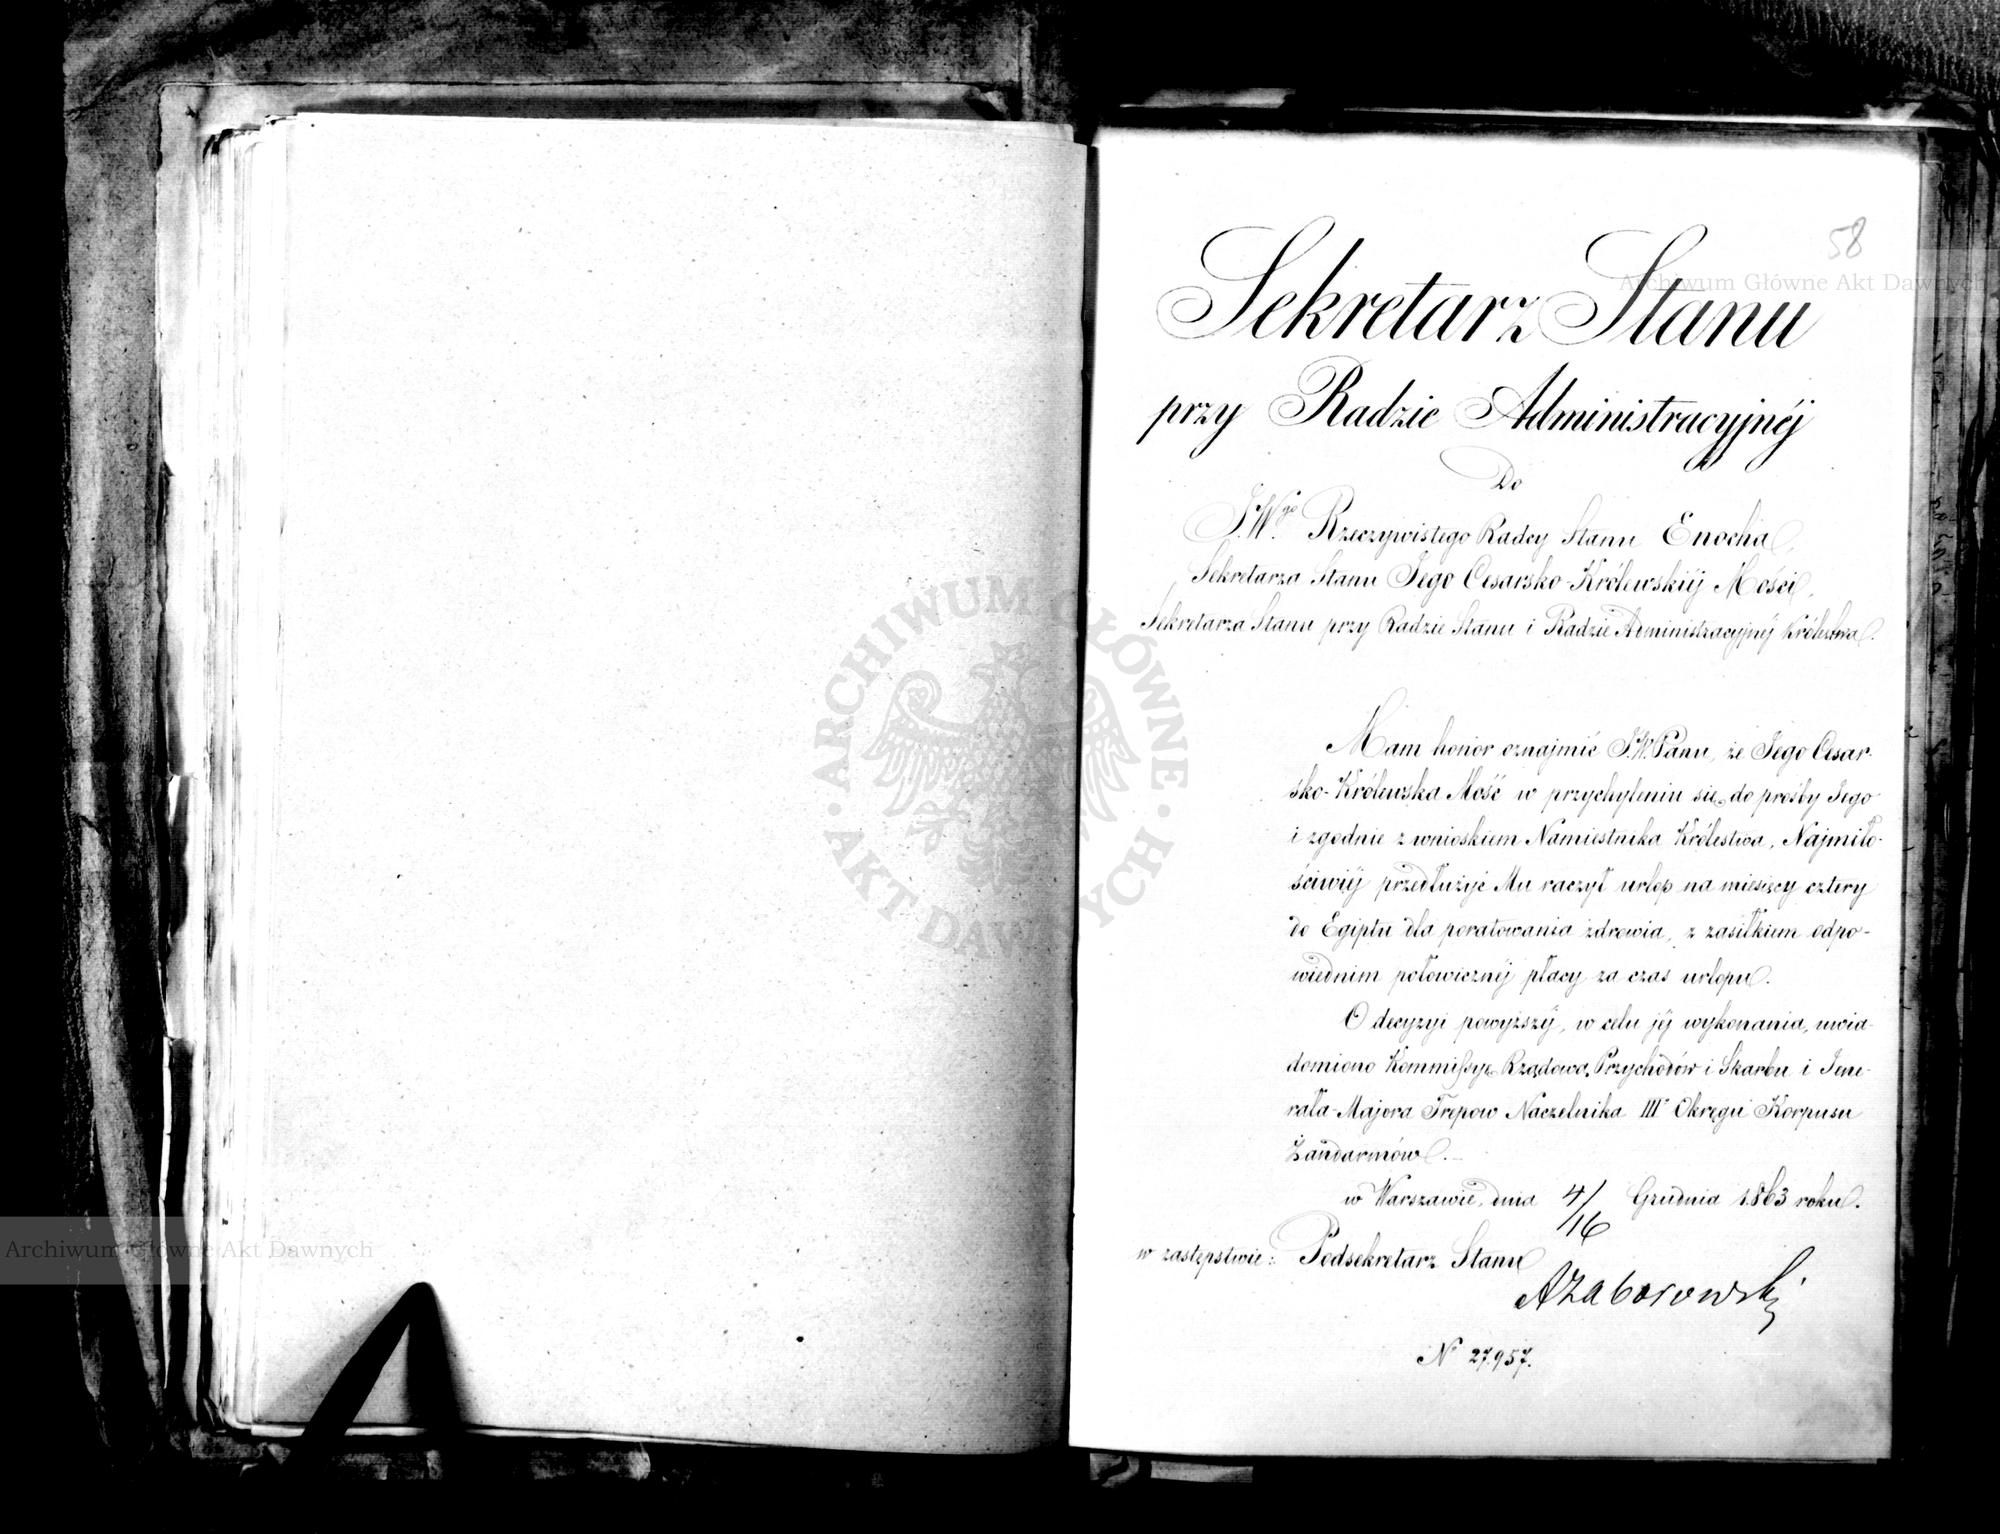 58
Sekretarz Stanu
przy Radzie Administracyjnéj
Do
J.W.go Rzeczywistego Radcy Stanu Enocha,
Sekretarza Stanu Jego Cesarsko-Królewskiéj Mości,
Sekretarza Stanu przy Radzie Stanu i Radzie Administracyjnéj Królestwa.
Mam honor oznajmić J.W. Panu, że Jego Cesar-
sko-Królewska Mość w przychyleniu się do prośby Jego
i zgodnie z wnioskiem Namiestnika Królestwa, Najmiło-
ściwiéj przedłużyć Mu raczył urlop na miesięcy cztery
do Egiptu dla poratowania zdrowia, z zasiłkiem odpo-
wiednim połowicznéj płacy za czas urlopu.
O decyzyi powyższéj, w celu jéj wykonania, uwia-
domiono Kommissyę Rządową Przychodów i Skarbu i Jene-
rała-Majora Trepow Naczelnika III Okręgu Korpusu
Żandarmów.
w Warszawie, dnia 4/16 Grudnia 1863 roku.
w zastępstwie: Podsekretarz Stanu
AZaborowski
N 27957.
Archiwum Główne Akt Dawnych
Archiwum Główne Akt Dawnych
ARCHIWUM GŁÓWNE · AKT DAWNYCH ·